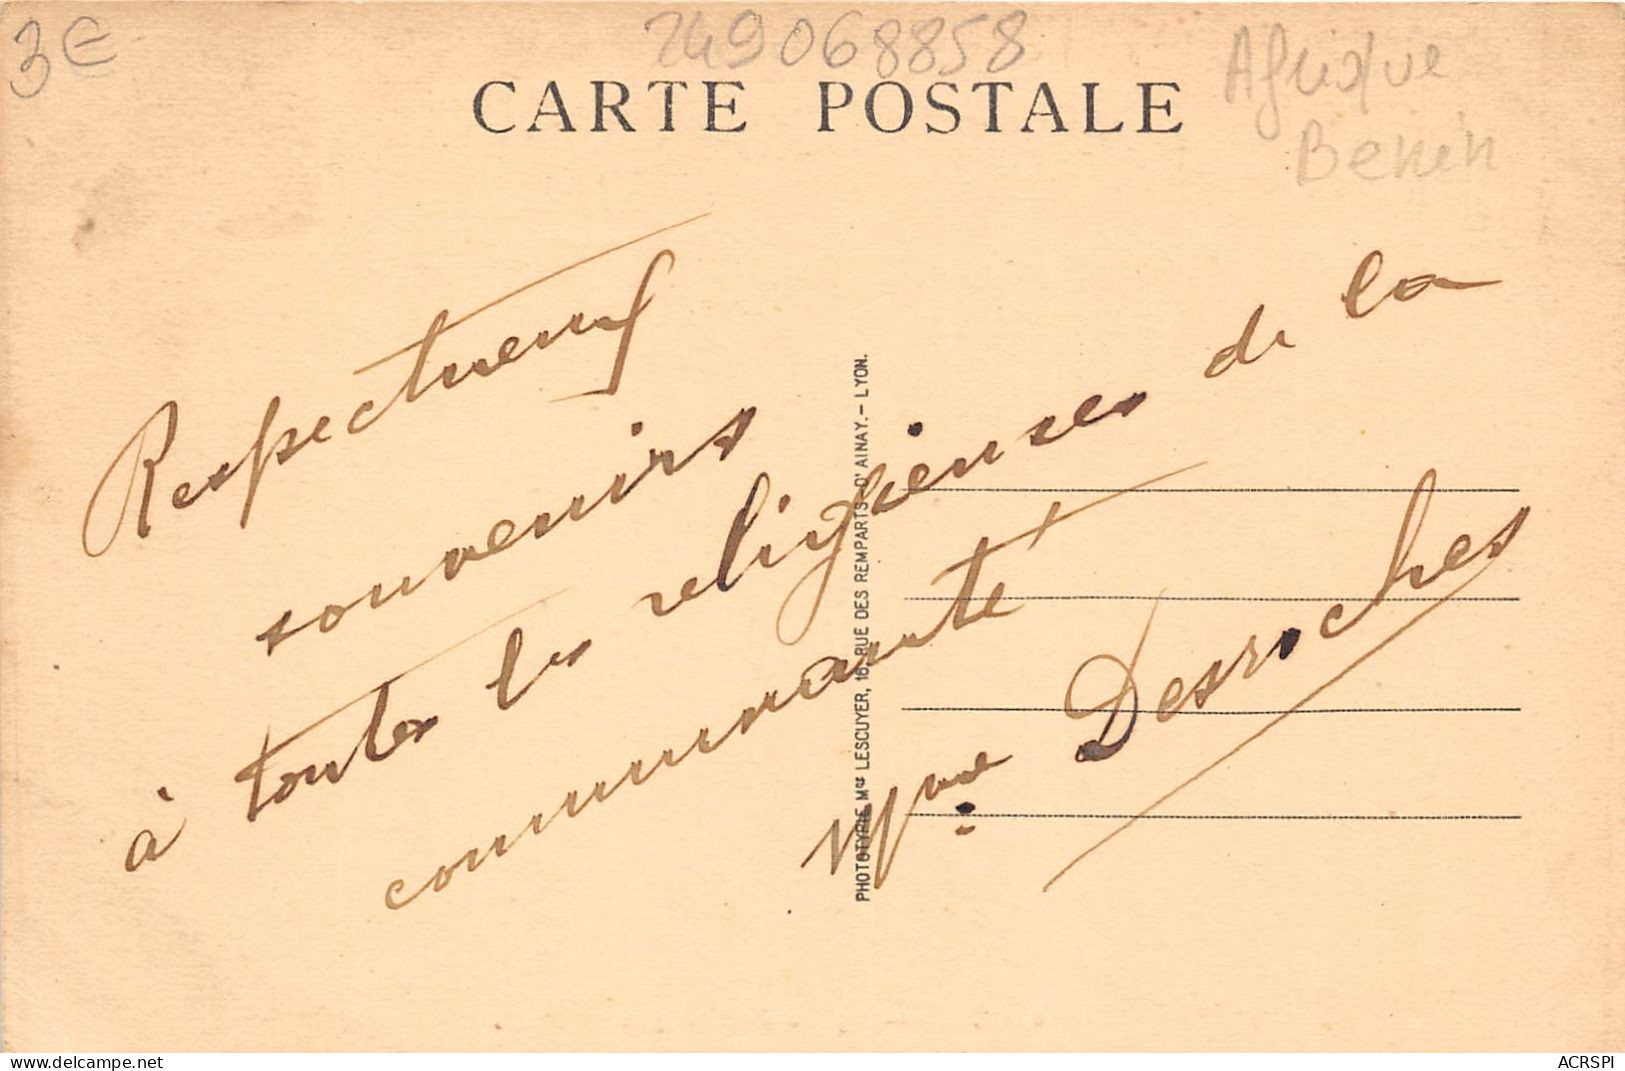 3€
249068858
Afrique
Benin
CARTE POSTALE
Respectueux
souvenirs
à toutes les religieuses de la
communauté
Mme Desroches
PHOTOTYPIE Mce LESCUYER, 16, RUE DES REMPARTS-D'AINAY.- LYON.
www.delcampe.net
ACRSPI